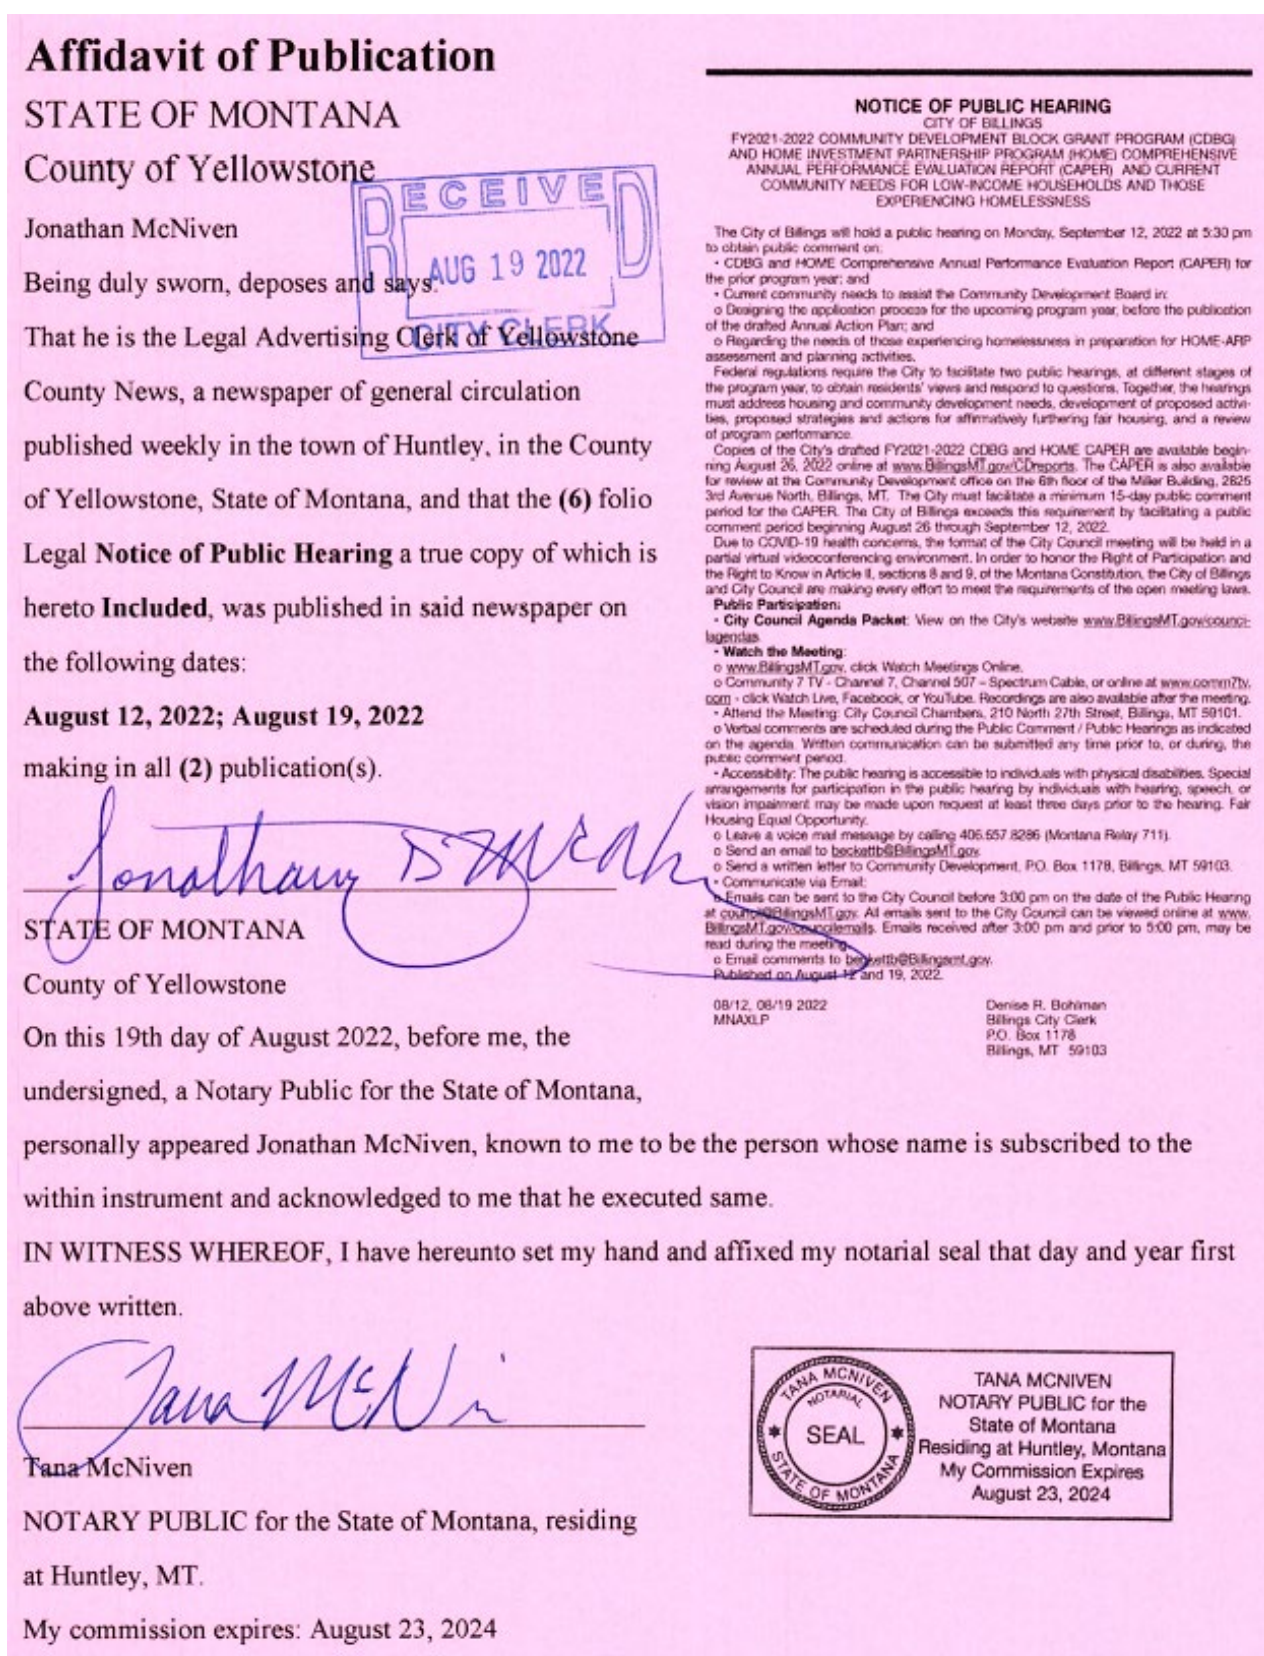 Affidavit of Publication
STATE OF MONTANA
County of Yellowstone
RECEIVED
AUG 19 2022
CITY CLERK
Jonathan McNiven
Being duly sworn, deposes and says:
That he is the Legal Advertising Clerk of Yellowstone
County News, a newspaper of general circulation
published weekly in the town of Huntley, in the County
of Yellowstone, State of Montana, and that the (6) folio
Legal Notice of Public Hearing a true copy of which is
hereto Included, was published in said newspaper on
the following dates:
August 12, 2022; August 19, 2022
making in all (2) publication(s).
STATE OF MONTANA
County of Yellowstone
On this 19th day of August 2022, before me, the
undersigned, a Notary Public for the State of Montana,
personally appeared Jonathan McNiven, known to me to be the person whose name is subscribed to the
within instrument and acknowledged to me that he executed same.
IN WITNESS WHEREOF, I have hereunto set my hand and affixed my notarial seal that day and year first
above written.
Tana McNiven
NOTARY PUBLIC for the State of Montana, residing
at Huntley, MT.
My commission expires: August 23, 2024
NOTICE OF PUBLIC HEARING
CITY OF BILLINGS
FY2021-2022 COMMUNITY DEVELOPMENT BLOCK GRANT PROGRAM (CDBG)
AND HOME INVESTMENT PARTNERSHIP PROGRAM (HOME) COMPREHENSIVE
ANNUAL PERFORMANCE EVALUATION REPORT (CAPER) AND CURRENT
COMMUNITY NEEDS FOR LOW-INCOME HOUSEHOLDS AND THOSE
EXPERIENCING HOMELESSNESS
The City of Billings will hold a public hearing on Monday, September 12, 2022 at 5:30 pm
to obtain public comment on:
• CDBG and HOME Comprehensive Annual Performance Evaluation Report (CAPER) for
the prior program year; and
• Current community needs to assist the Community Development Board in:
o Designing the application process for the upcoming program year, before the publication
of the drafted Annual Action Plan; and
o Regarding the needs of those experiencing homelessness in preparation for HOME-ARP
assessment and planning activities.
Federal regulations require the City to facilitate two public hearings, at different stages of
the program year, to obtain residents' views and respond to questions. Together, the hearings
must address housing and community development needs, development of proposed activi-
ties, proposed strategies and actions for affirmatively furthering fair housing, and a review
of program performance.
Copies of the City's drafted FY2021-2022 CDBG and HOME CAPER are available begin-
ning August 26, 2022 online at www.BillingsMT.gov/CDreports. The CAPER is also available
for review at the Community Development office on the 6th floor of the Miller Building, 2825
3rd Avenue North, Billings, MT. The City must facilitate a minimum 15-day public comment
period for the CAPER. The City of Billings exceeds this requirement by facilitating a public
comment period beginning August 26 through September 12, 2022.
Due to COVID-19 health concerns, the format of the City Council meeting will be held in a
partial virtual videoconferencing environment. In order to honor the Right of Participation and
the Right to Know in Article II, sections 8 and 9, of the Montana Constitution, the City of Billings
and City Council are making every effort to meet the requirements of the open meeting laws.
Public Participation:
• City Council Agenda Packet: View on the City's website www.BillingsMT.gov/counci-
lagendas.
• Watch the Meeting:
o www.BillingsMT.gov, click Watch Meetings Online.
o Community 7 TV - Channel 7, Channel 507 – Spectrum Cable, or online at www.comm7tv.
com - click Watch Live, Facebook, or YouTube. Recordings are also available after the meeting.
• Attend the Meeting: City Council Chambers, 210 North 27th Street, Billings, MT 59101.
o Verbal comments are scheduled during the Public Comment / Public Hearings as indicated
on the agenda. Written communication can be submitted any time prior to, or during, the
public comment period.
• Accessibility: The public hearing is accessible to individuals with physical disabilities. Special
arrangements for participation in the public hearing by individuals with hearing, speech, or
vision impairment may be made upon request at least three days prior to the hearing. Fair
Housing Equal Opportunity.
o Leave a voice mail message by calling 406.657.8286 (Montana Relay 711).
o Send an email to beckettb@BillingsMT.gov.
o Send a written letter to Community Development, P.O. Box 1178, Billings, MT 59103.
• Communicate via Email:
o Emails can be sent to the City Council before 3:00 pm on the date of the Public Hearing
at council@BillingsMT.gov. All emails sent to the City Council can be viewed online at www.
BillingsMT.gov/councilemails. Emails received after 3:00 pm and prior to 5:00 pm, may be
read during the meeting.
o Email comments to beckettb@Billingsmt.gov.
Published on August 12 and 19, 2022.
08/12, 08/19 2022
MNAXLP
Denise R. Bohlman
Billings City Clerk
P.O. Box 1178
Billings, MT 59103
TANA MCNIVEN
NOTARIAL
SEAL
STATE OF MONTANA
TANA MCNIVEN
NOTARY PUBLIC for the
State of Montana
Residing at Huntley, Montana
My Commission Expires
August 23, 2024